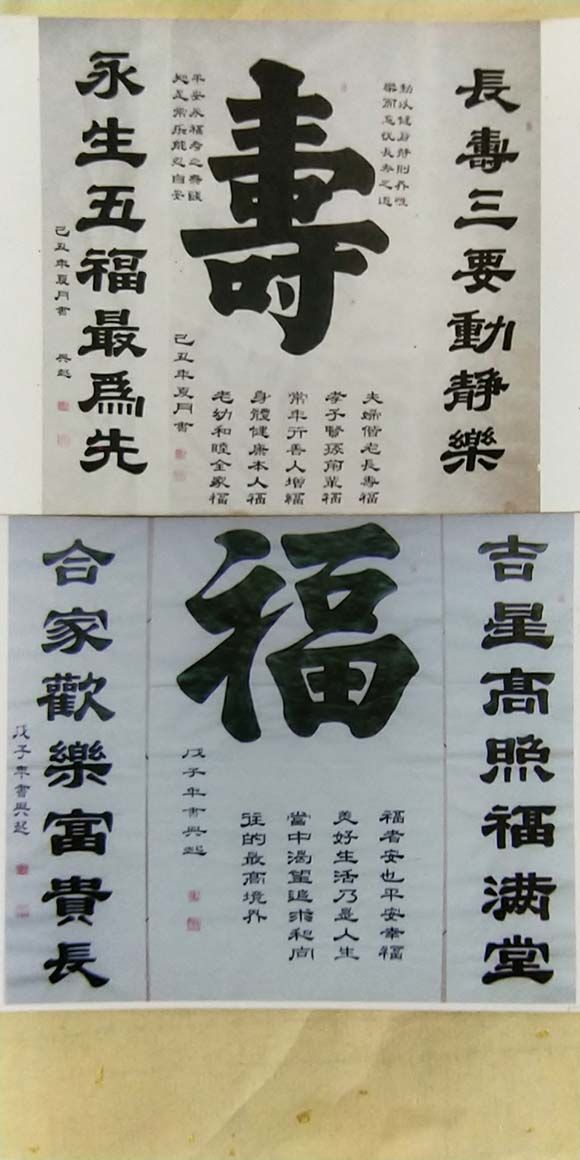 長壽三要動靜樂
動以健身靜則养性
樂而忘忧長寿之道
壽
平安永福寿之
知足常乐能忍自安
夫婦偕老長壽福
孝子賢孫福
常年行善人增福
身體健康本人福
老幼和睦全家福
己丑年夏月書
永生五福最為先
己丑年夏月書 興起
吉星高照福满堂
福
福者安也平安幸福
美好生活乃是人生
當中渴望追求和向
往的最高境界
戊子年書興起
合家歡樂富貴長
戊子年書興起